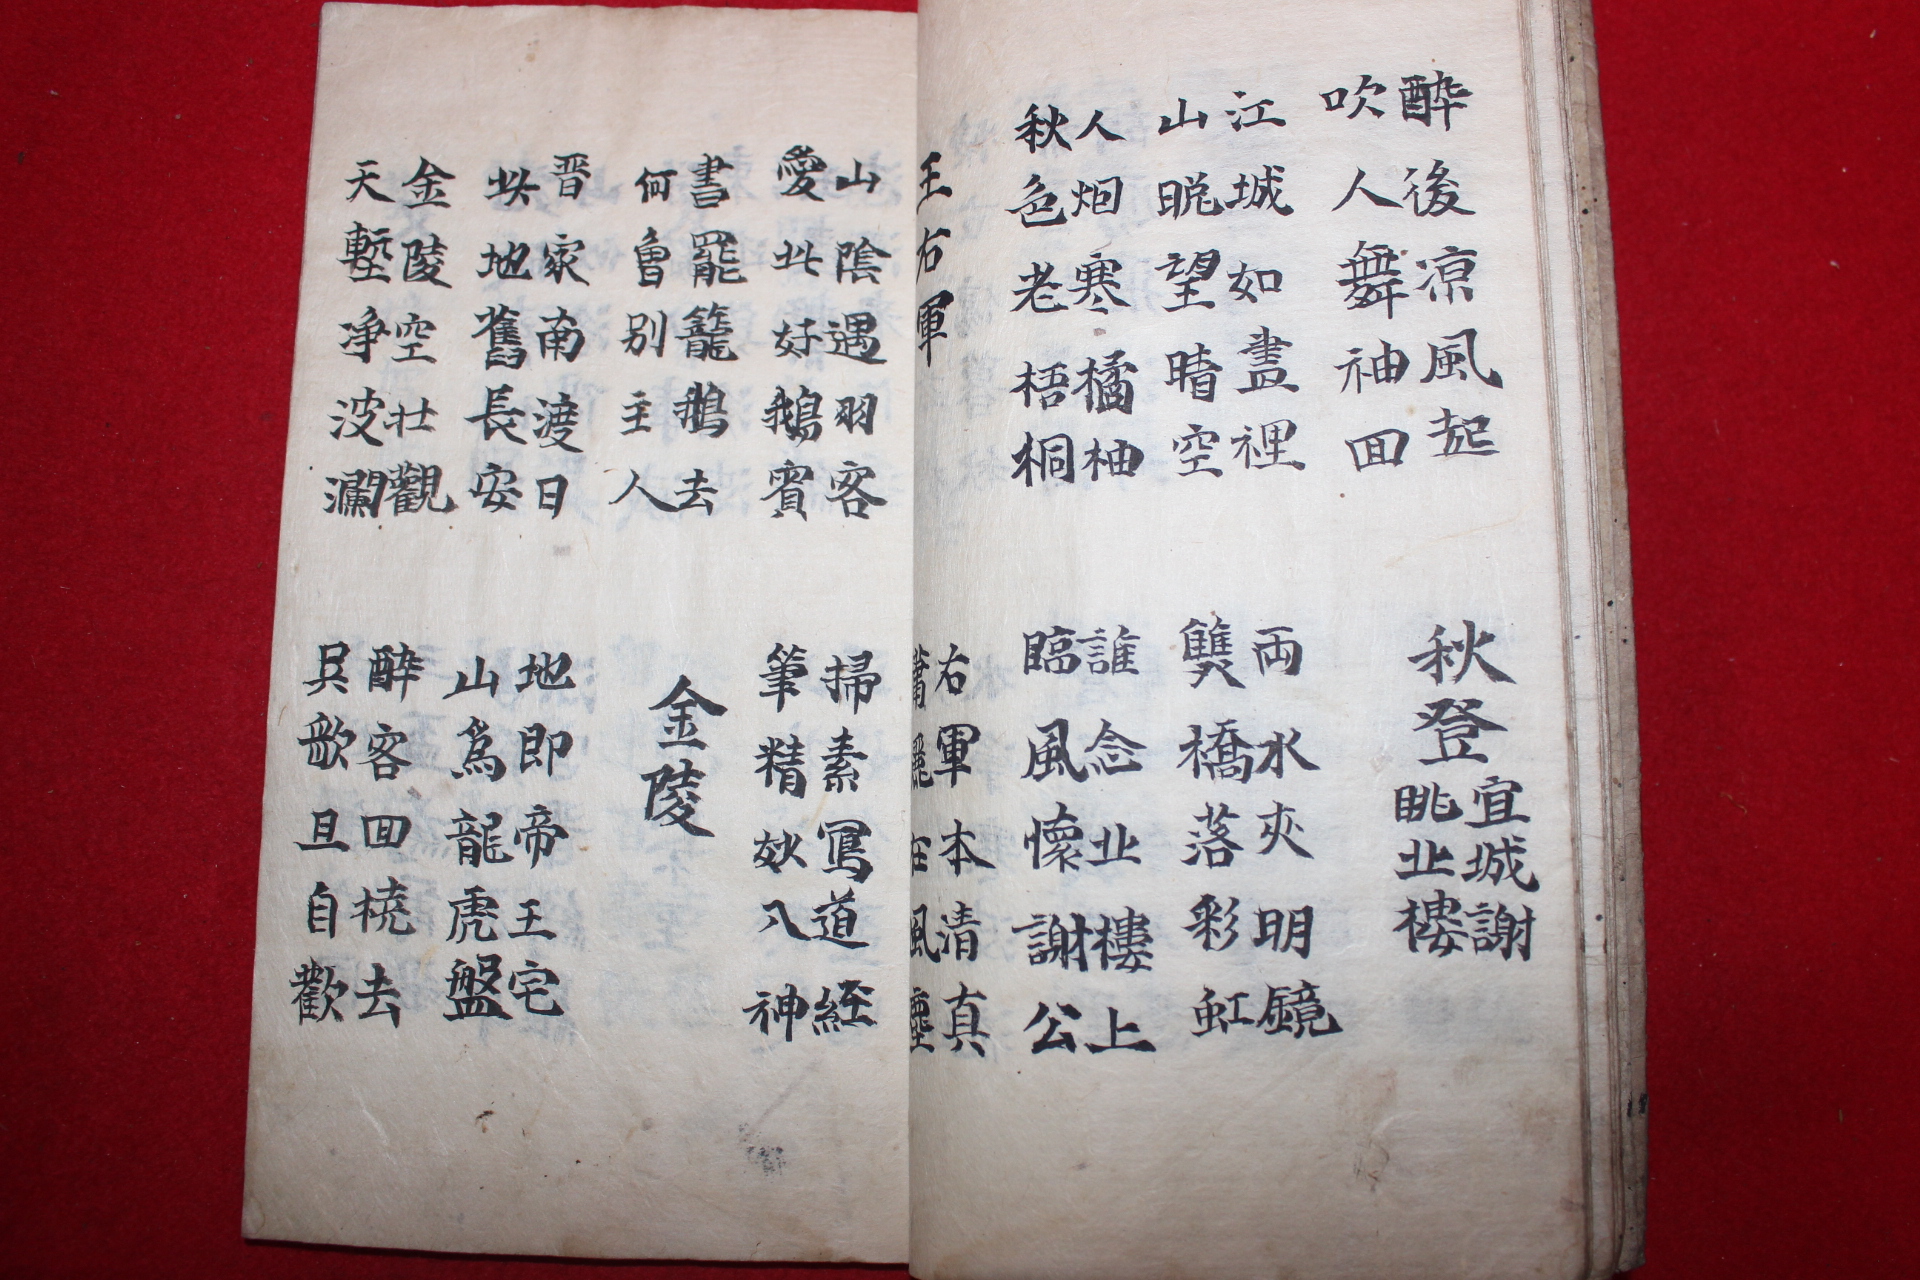 醉後凉風起
吹人舞袖囬
秋登
宜城謝
眺北樓
江城如畫裡
山晩望晴空
両水夾明鏡
雙橋落彩虹
人烟寒橘柚
秋色老梧桐
誰念北樓上
臨風懷謝公
王右軍
右軍本清真
瀟灑在風塵
山陰遇羽客
愛此好鵝賓
掃素寫道経
筆精妙入神
書罷籠鵝去
何曾別主人
金陵
晋家南渡日
此地舊長安
地即帝王宅
山爲龍虎盤
金陵空壯觀
天塹净波瀾
醉客囬橈去
吳歌且自歡